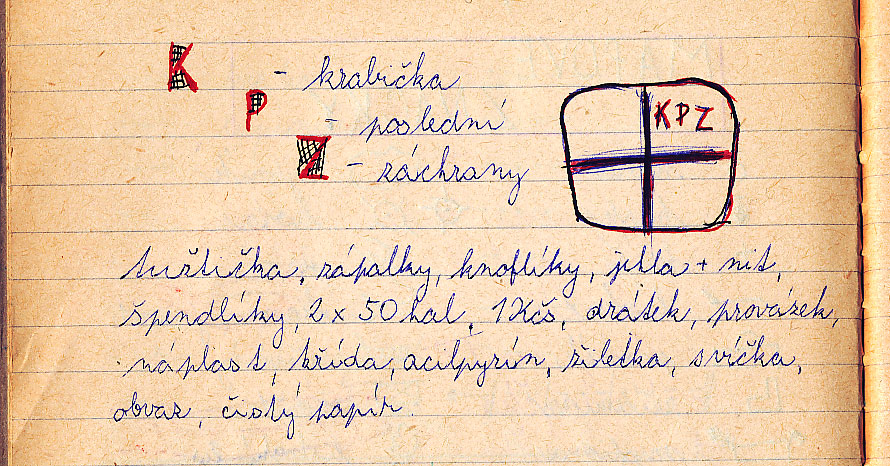 K - krabička
P - poslední
Z - záchrany
KPZ
tužtička, zápalky, knoflíky, jehla + nit,
špendlíky, 2 x 50 hal, 1 Kčs, drátek, provázek,
náplast, křída, acilpyrín, žiletka, svíčka,
obvaz, čistý papír.